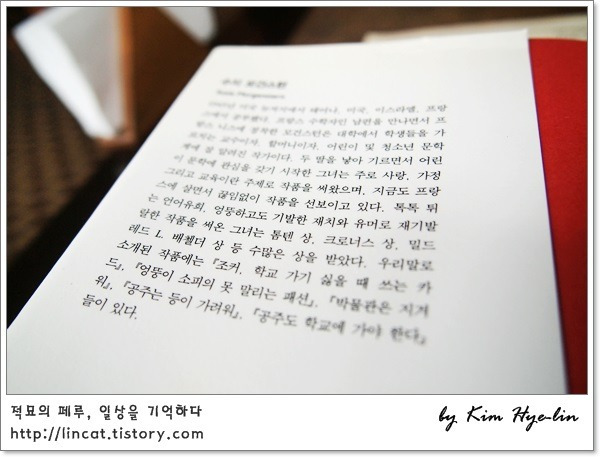 수지 모건스턴
Susie Morgenstern
미국, 이스라엘, 프랑
스에서 공부했다. 프랑스 수학자인 남편을 만나면서 프
랑스 니스에 정착한 모건스턴은 대학에서 학생들을 가
르치는 교수이자, 할머니이자, 어린이 및 청소년 문학
계에 잘 알려진 작가이다. 두 딸을 낳아 기르면서 어린
이 문학에 관심을 갖기 시작한 그녀는 주로 사랑, 가정
그리고 교육이란 주제로 작품을 써왔으며, 지금도 프랑
스에 살면서 끊임없이 작품을 선보이고 있다. 톡톡 튀
는 언어유희, 엉뚱하고도 기발한 재치와 유머로 재기발
랄한 작품을 써온 그녀는 톰텐 상, 크로너스 상, 밀드
레드 L. 배첼더 상 등 수많은 상을 받았다. 우리말로
소개된 작품에는 『조커, 학교 가기 싫을 때 쓰는 카
드』, 『엉뚱이 소피의 못 말리는 패션』, 『박물관은 지겨
워』, 『공주는 등이 가려워』, 『공주도 학교에 가야 한다』
들이 있다.
적묘의 페루, 일상을 기억하다
http://lincat.tistory.com
by Kim Hye-lin